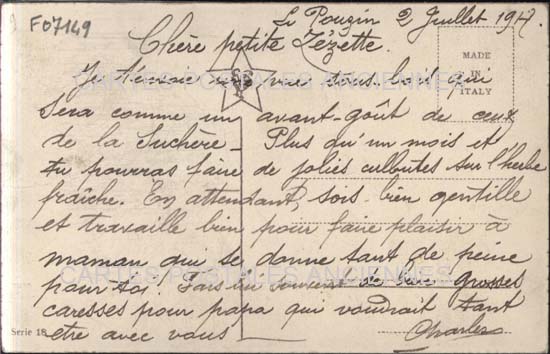 F07149
Le Pouzin 2 Juillet 1917
Chère petite Zézette.
MADE
IN
ITALY
Je t'envoie vous tous qui
CARTES POSTALES ANCIENNES
sera comme un avant-goût de ceux
de la Suchère - Plus qu'un mois et
tu pourras faire de jolies culbutes sur l'herbe
fraîche. En attendant, sois bien gentille
et travaille bien pour faire plaisir à
maman qui se donne tant de peine
CARTES POSTALES ANCIENNES
pour toi! Fais lui de grosses
caresses pour papa qui voudrait tant
Serie 18
être avec vous
Charles